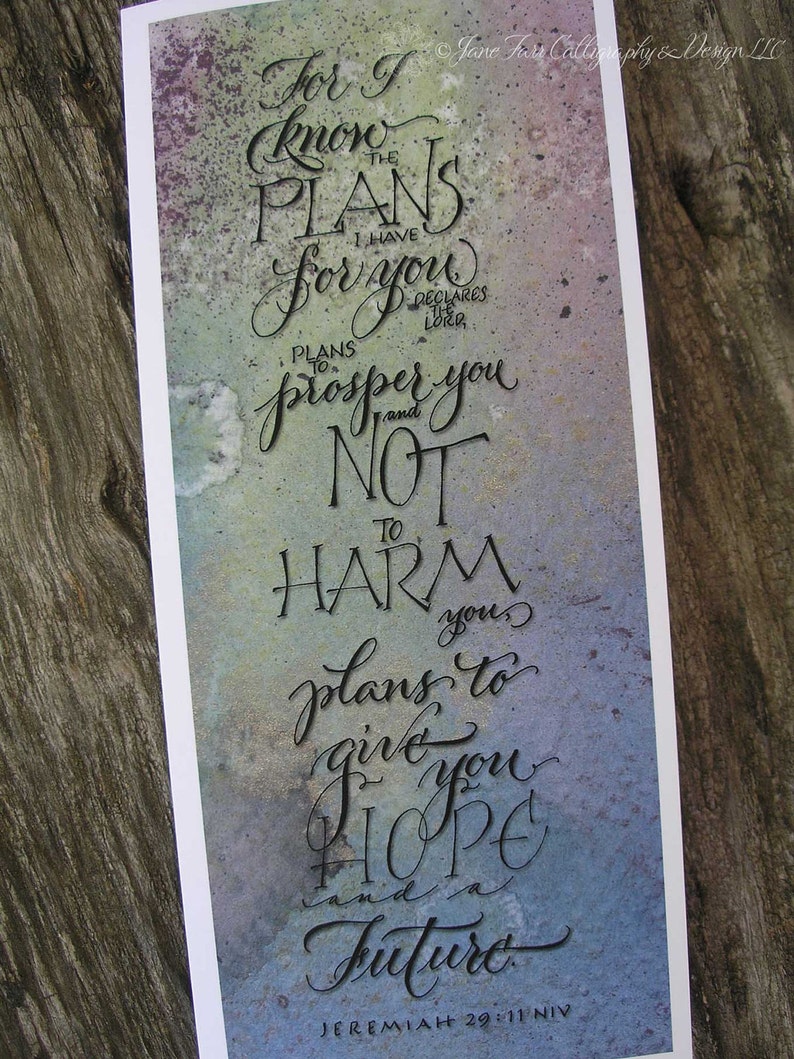 © Jane Farr Calligraphy & Design LLC
For I
know
THE
PLANS
I HAVE
for you,
DECLARES
THE
LORD,
PLANS
TO
prosper you
and
NOT
TO
HARM
you,
plans to
give
you
HOPE
and a
Future.
JEREMIAH 29:11 NIV